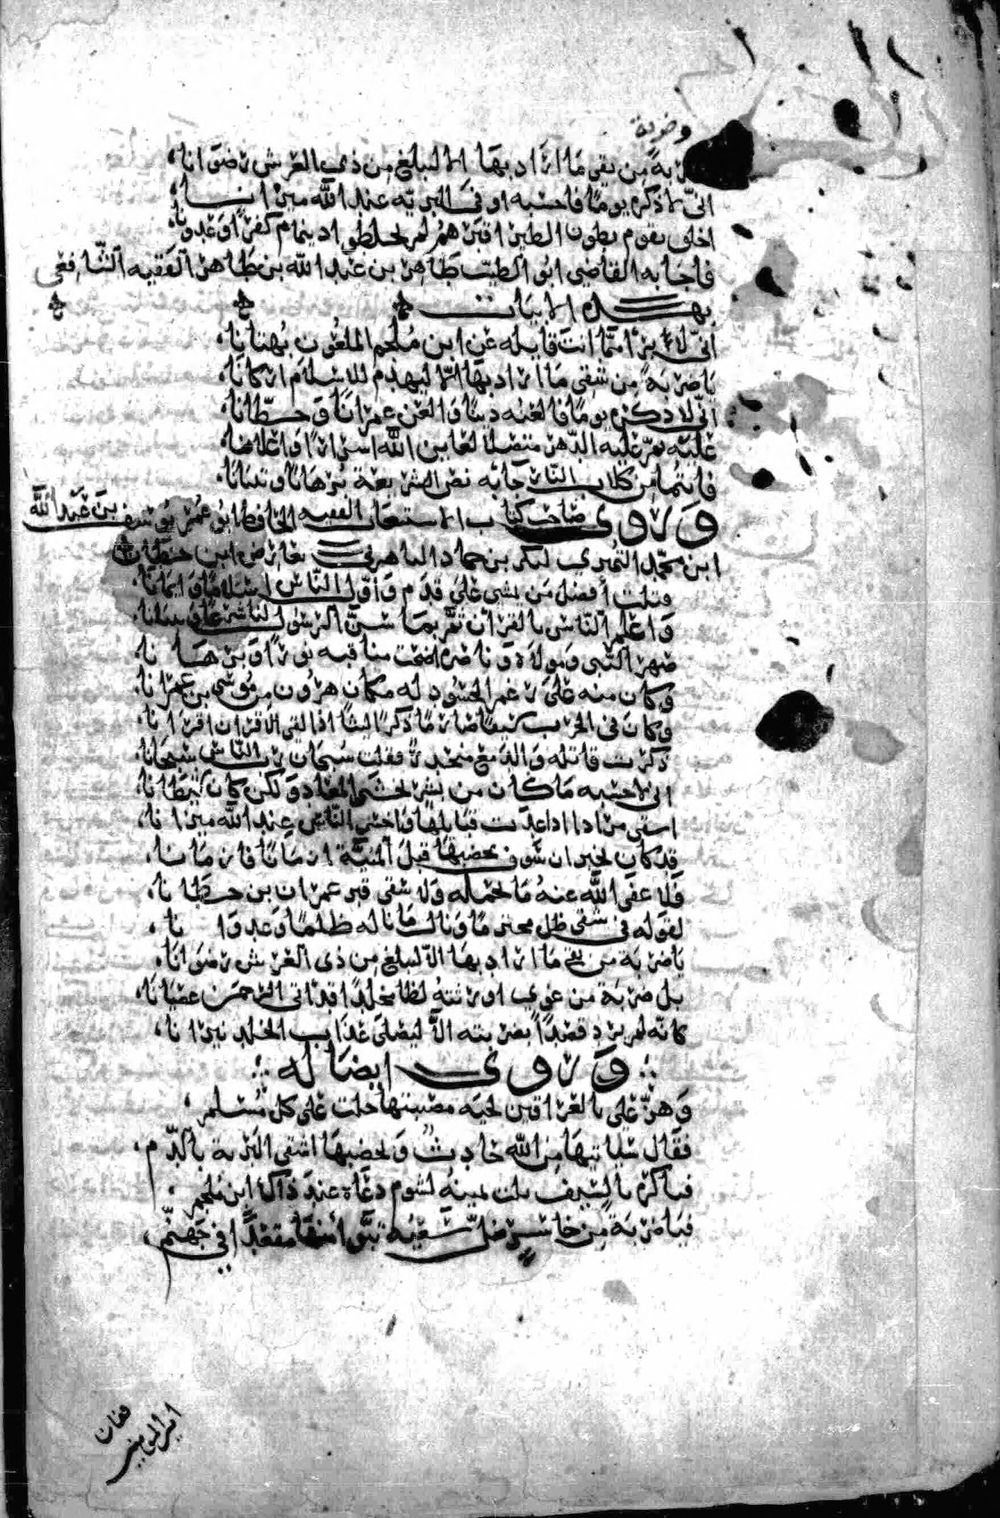 وضربة
ضربة من تقي ما اراد بها الا ليبلغ من ذي العرش رضوانا
اني لاذكره يوما فاحسبه اوفى البرية عند الله ميزانا
اخلق بقوم بطون الطير اقبرهم لم يخلطوا دينهم كفرا وعدوانا
فاجابه القاضي ابو الطيب طاهر بن عبد الله بن طاهر الفقيه الشافعي
بهذه الابيات
اني لابرأ مما انت قايله عن ابن ملجم الملعون بهتانا
يا ضربة من شقي ما اراد بها الا ليهدم للاسلام اركانا
اني لاذكره يوما فالعنه دينا والعن عمرانا وحطانا
عليه ثم عليه الدهر متصلا لعاين الله اسرارا واعلانا
فانتما من كلاب النار جا به نص الشريعة برهانا وتبيانا
وروى صاحب كتاب الاستيعاب الفقيه الحافظ ابو عمر يوسف بن عبد الله
ابن محمد النمري لبكر بن حماد الباهري يعارض ابن حطان
قتلت أفضل من يمشي على قدم واول الناس اسلاما وايمانا
واعلم الناس بالقران ثم بما سن الرسول لنا شرعا وتبيانا
صهر النبي ومولاه وناصره اضحت مناقبه نورا وبرهانا
وكان منه على رغم الحسود له مكان هرون من موسى بن عمرانا
وكان في الحرب سيفا صارما ذكرا ليثا اذا لقي الاقران اقرانا
ذكرت قاتله والدمع منحدر فقلت سبحان رب الناس سبحانا
اني لاحسبه ما كان من بشر يخشى المعاد ولكن كان شيطانا
اشقى مرادا اذا عدت قبايلها واخسر الناس عند الله ميزانا
قد كان يخبر ان سوف يخضبها قبل المنية ازمانا فازمانا
فلا عفى الله عنه ما تحمله ولا سقى قبر عمران بن حطانا
لقوله في شقي ظل مجترما ونال ما ناله ظلما وعدوانا
يا ضربة من تقي ما اراد بها الا ليبلغ من ذي العرش رضوانا
بل ضربة من غوي اورثته لظا مخلدا قد اتى الرحمن عصيانا
كانه لم يرد قصدا بضربته الا ليصلى عذاب الخلد نيرانا
وروى ايضا له
وهز علي بالعراقين لحيه مصيبتها جلت على كل مسلم
فقال سياتيها من الله حادث ويخضبها اشقى البرية بالدم
فباكره بالسيف شلت يمينه لشوم دعاه عند ذاك ابن ملجم
فيا ضربة من خاسر ضل سعيه تبوا منها مقعدا في جهنم
امير المومنين